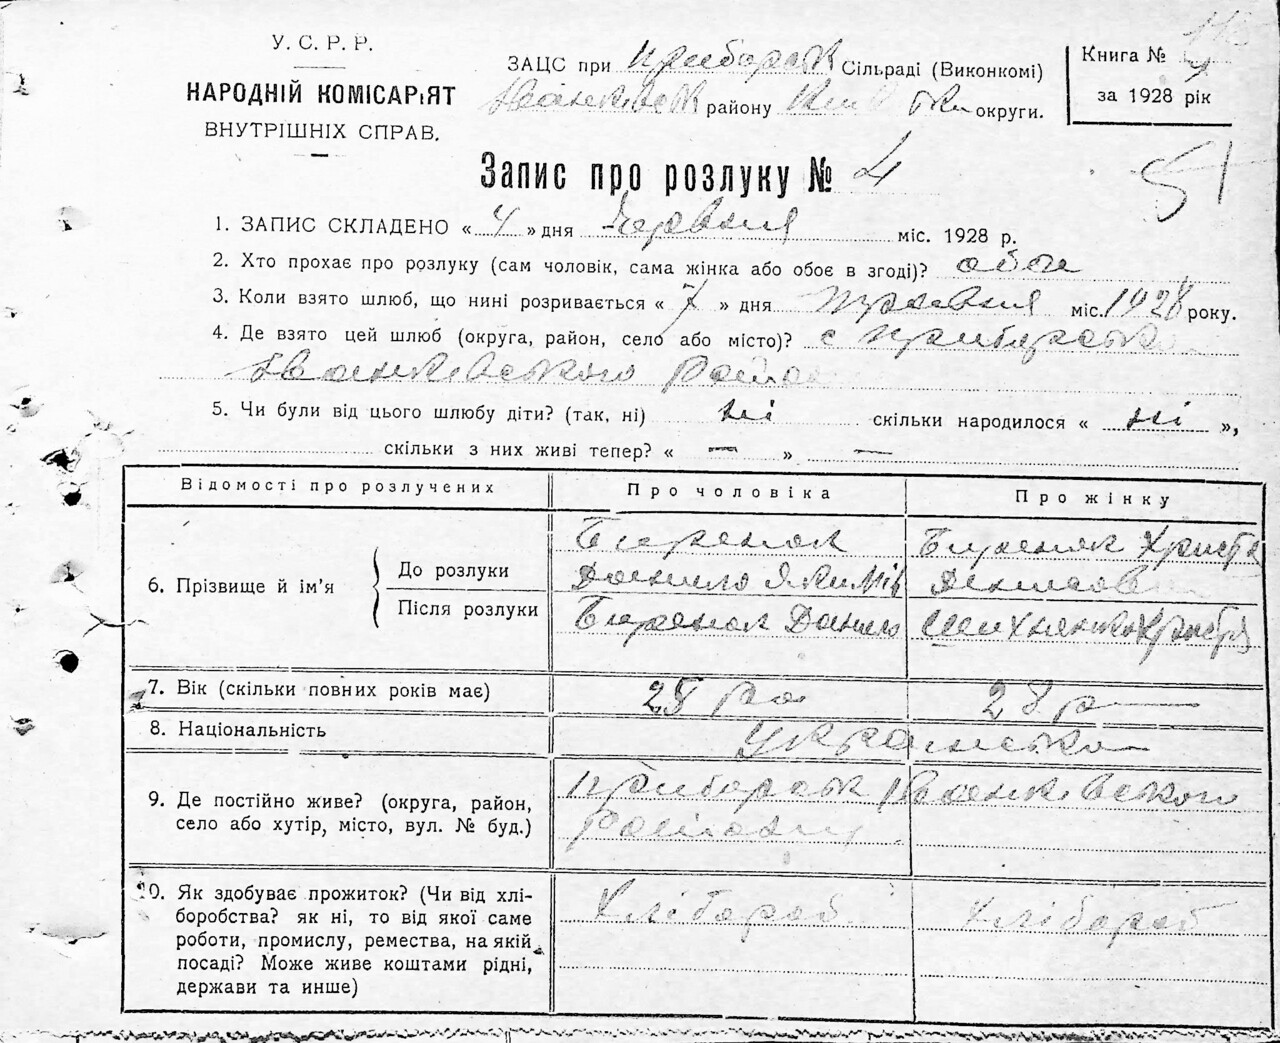 У.С.Р.Р.
НАРОДНІЙ КОМІСАРІЯТ
ВНУТРІШНІХ СПРАВ.
ЗАЦС при Приборськ Сільраді (Виконкомі)
Іванківськ району Київськ округи.
Книга №
за 1928 рік
51
Запис про розлуку № 4
1. ЗАПИС СКЛАДЕНО « 4 » дня Червня міс. 1928 р.
2. Хто прохає про розлуку (сам чоловік, сама жінка або обоє в згоді)? обоє
3. Коли взято шлюб, що нині розривається « 7 » дня травня міс. 1928 року.
4. Де взято цей шлюб (округа, район, село або місто)? с
Іванківського Району
5. Чи були від цього шлюбу діти? (так, ні) ні скільки народилося « ні »,
скільки з них живі тепер? « — » —
Відомості про розлучених
Про чоловіка
Про жінку
6. Прізвище й ім’я
До розлуки
Данило Якимів
Христя
Після розлуки
Данило
7. Вік (скільки повних років має)
25
28 р
8. Національність
Українська
9. Де постійно живе? (округа, район,
село або хутір, місто, вул. № буд.)
Приборськ Іванківського
Району
10. Як здобуває прожиток? (Чи від хлі-
боробства? як ні, то від якої саме
роботи, промислу, ремества, на якій
посаді? Може живе коштами рідні,
держави та инше)
Хлібороб
Хлібороб